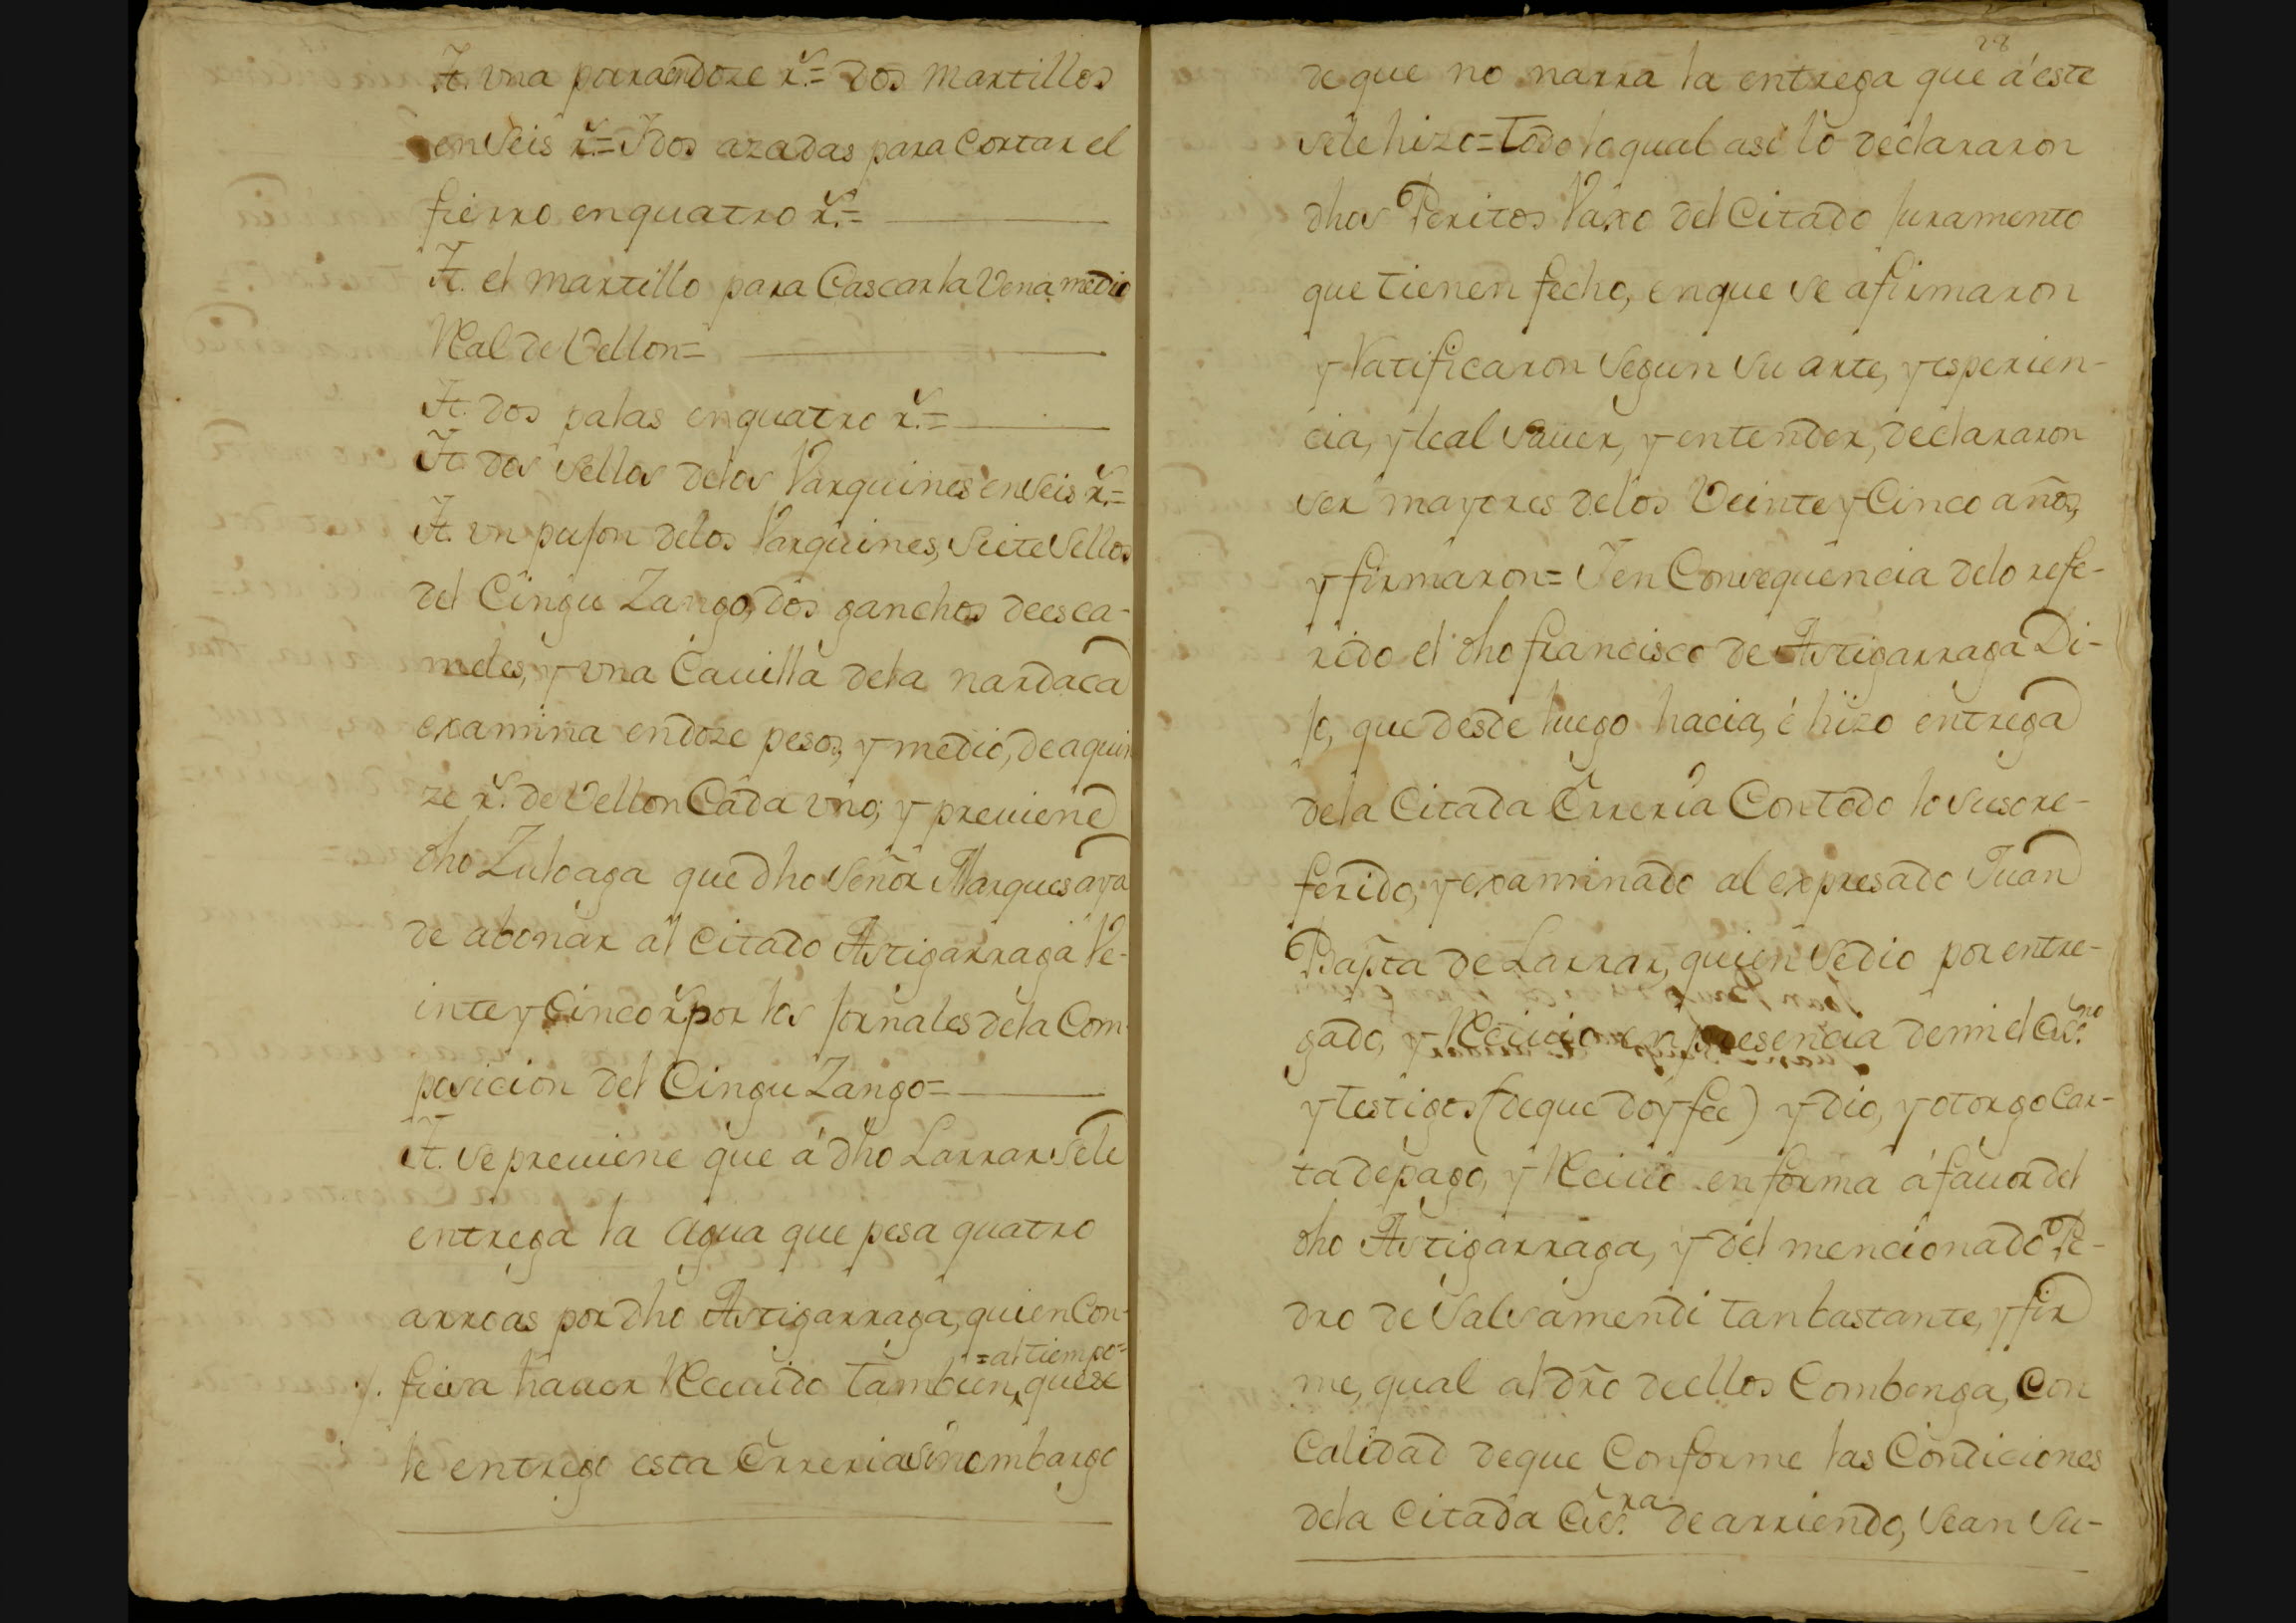 It. vna porra en doze rs.= dos martillos
en seis rs.= Y dos azadas para Cortar el
fierro en quatro rs.=
It. el martillo para Cascar la Vena medio
Real de Vellon=
It. dos palas en quatro rs.=
It. dos sellos de los Varquines en seis rs.=
It. vn pujon de los Varquines, siete sellos
del Cinguzango, dos ganchos de esca-
meles, y vna Cauilla de la nardaca
examina en doze pesos, y medio, de a quin
ze rs. de Vellon Cada vno; y preuiene
dho Zuloaga que dho señor Marques aya
de abonar al Citado Astigarraga Ve-
inte y Cinco rs por los jornales de la Com-
posicion del Cinguzango=
It. se preuiene que á dho Larrar se le
entrega la Agua que pesa quatro
arroas por dho Astigarraga, quien Con-
=al tiempo=
y. fiesa hauer Reciuido tambien, que se
le entrego esta Erreria sin embargo
28
de que no narra la entrega que á este
se le hizo= Todo lo qual asi lo declararon
dhos Peritos Vaxo del Citado juramento
que tienen fecho, en que se afirmaron
y Ratificaron segun su arte, y esperien-
cia, y leal sauer, y entender, declararon
ser mayores de los Veinte y Cinco años,
y firmaron= Y en Consequencia de lo refe-
rido el dho francisco de Astigarraga Di-
jo, que desde luego hacia, é hizo entrega
de la Citada Errería Con todo lo suso re-
ferido, y examinado al expresado Juan
Bapta de Larrar, quien se dio por entre-
gado, y Reciuio en presencia de mi el Essno.
y testigos (de que doy fee) y dio, y otorgo Car-
ta de pago, y Reciuo en forma á fauor del
dho Astigarraga, y del mencionado Pe-
dro de Salsamendi tan bastante, y fir
me, qual al dro de ellos Combenga, Con
Calidad de que Conforme las Condiciones
de la Citada Essra. de arriendo, sean su-